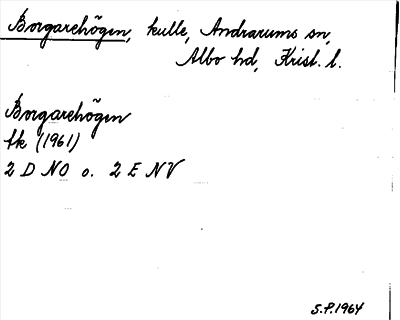 Borgarehögen, kulle, Andrarums sn,
Albo hd, Krist. l.
Borgarehögen
tk (1961)
2 D NO o. 2 E NV
S.P. 1964